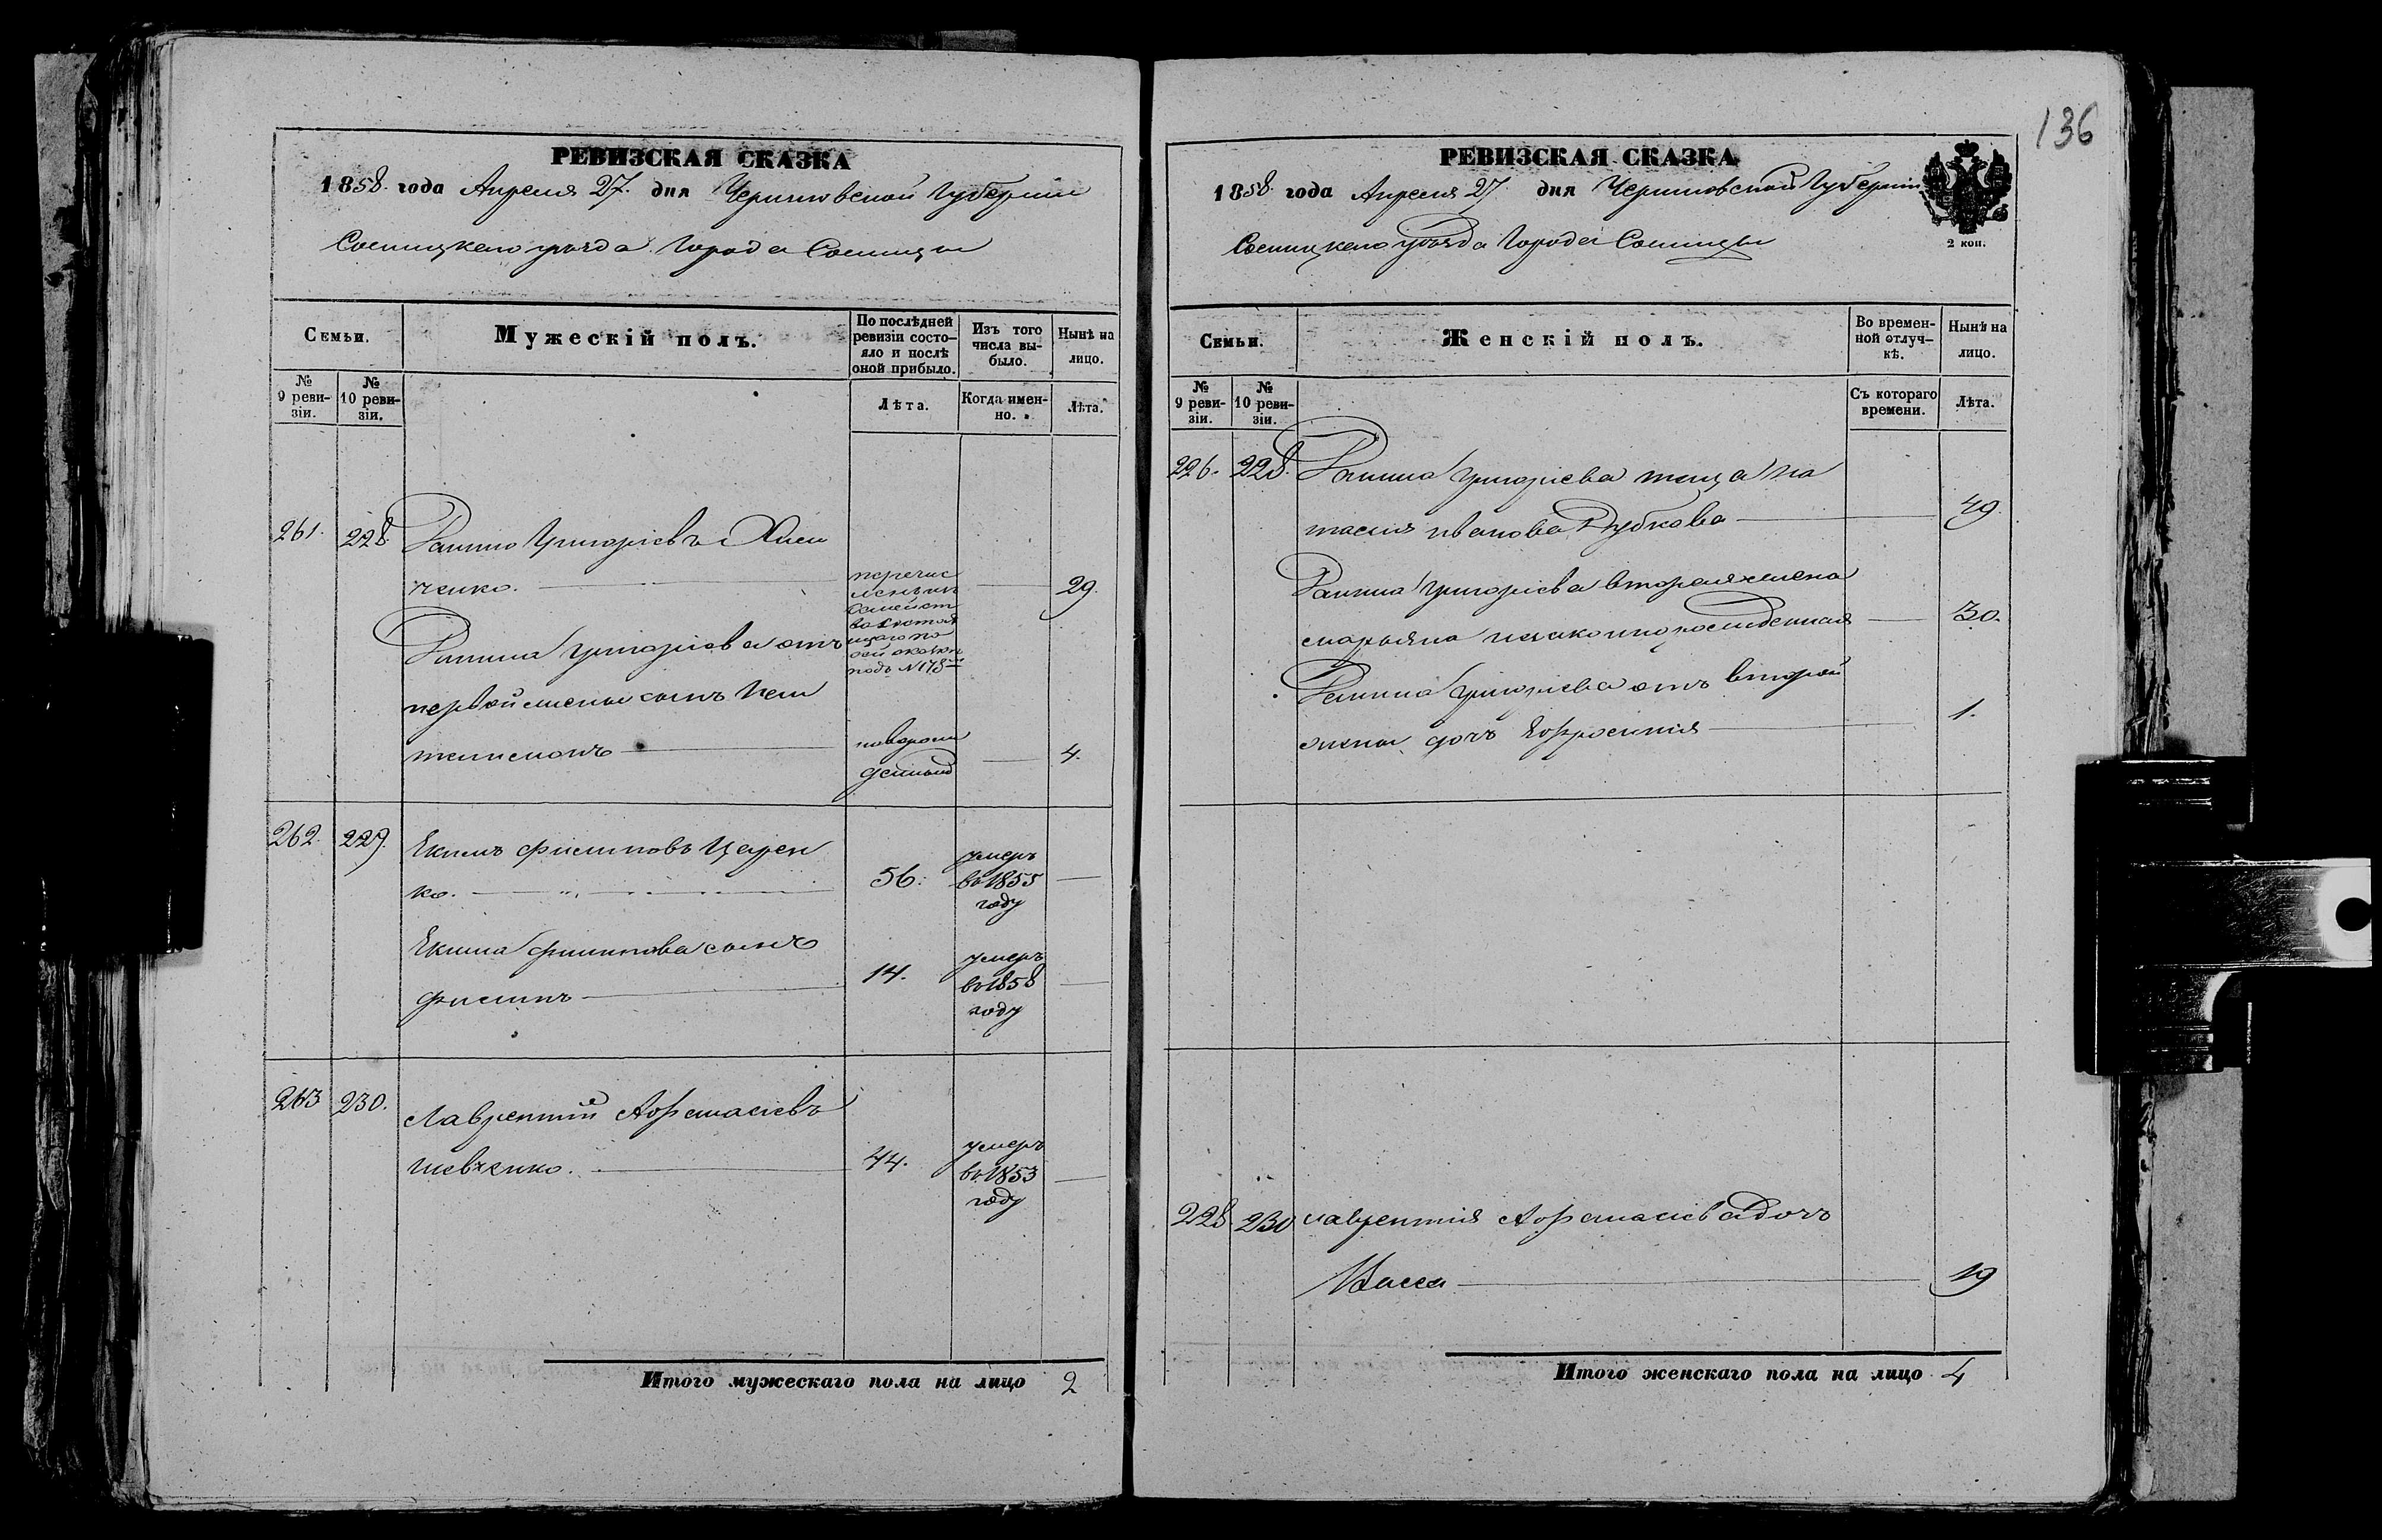 136
РЕВИЗСКАЯ СКАЗКА
1858. года Апреля 27. дня Черниговской Губернии
Сосницкаго уѣзда Города Сосницы
Семьи.
Мужескій полъ.
По послѣдней ревизіи состояло и послѣ оной прибыло.
Изъ того числа выбыло.
Нынѣ на лицо.
№ 9 ревизіи.
№ 10 ревизіи.
Лѣта.
Когда именно.
Лѣта.
261. 228.
Григоріевъ
ченко. 29.
перечис
под №178
Григоріева отъ
первой жены сынъ Пан
телеимонъ 4.
новорож
денный
262. 229. Екимъ Филиповъ Царен
ко. 56. умеръ в 1855 году
Екима Филипова сынъ
Филипъ 14. умеръ в 1858 году
263 230. Лаврентий Афанасіевъ
Шевченко. 44. умеръ в 1853 году
Итого мужескаго пола на лицо 2
РЕВИЗСКАЯ СКАЗКА
1858 года Апреля 27 дня Черниговской Губернии
Сосницкаго уѣзда Города Сосницы
2 коп.
Семьи.
Женскій полъ.
Во временной отлучкѣ.
Нынѣ на лицо.
№ 9 ревизіи.
№ 10 ревизіи.
Съ котораго времени.
Лѣта.
226. 228. Григоріева теща На
тасия Иванова Дубкова 49
Григоріева вторая жена
Марьяна незаконнорожденная 30.
Григоріева отъ второй
жены дочь Ефросиния 1.
228 230 Лаврентия Афанасіева дочь
Васса 19
Итого женскаго пола на лицо 4